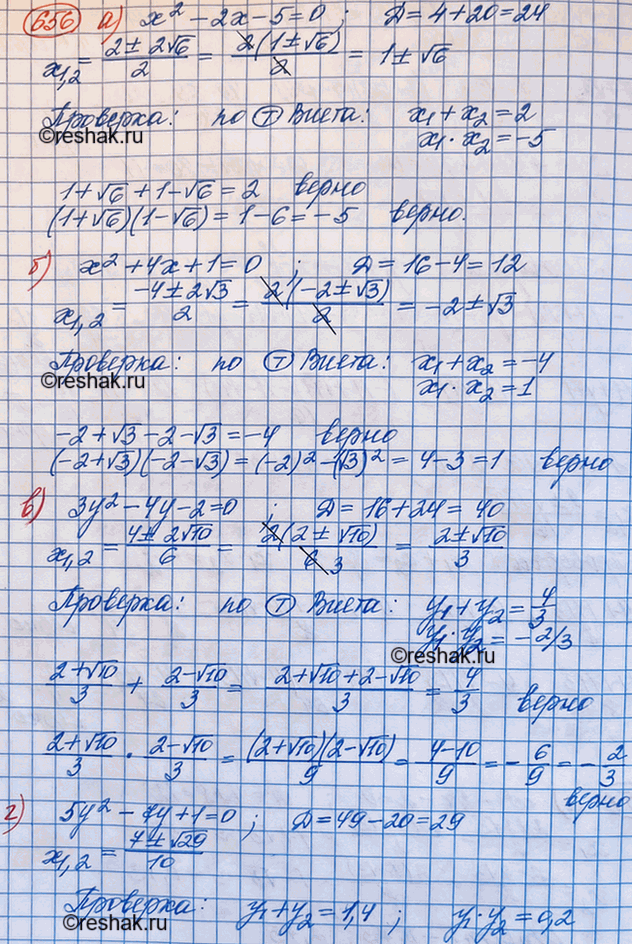 656 а) x² - 2x - 5 = 0 ; D = 4 + 20 = 24
x₁,₂ = (2 ± 2√6)/2 = 2(1 ± √6)/2 = 1 ± √6
Проверка: по Т Виета: x₁ + x₂ = 2
©reshak.ru
x₁ · x₂ = -5
1 + √6 + 1 - √6 = 2 верно
(1 + √6)(1 - √6) = 1 - 6 = -5 верно.
б) x² + 4x + 1 = 0 ; D = 16 - 4 = 12
x₁,₂ = (-4 ± 2√3)/2 = 2(-2 ± √3)/2 = -2 ± √3
Проверка: по Т Виета: x₁ + x₂ = -4
©reshak.ru
x₁ · x₂ = 1
-2 + √3 - 2 - √3 = -4 верно
(-2 + √3)(-2 - √3) = (-2)² - (√3)² = 4 - 3 = 1 верно
в) 3y² - 4y - 2 = 0 ; D = 16 + 24 = 40
x₁,₂ = (4 ± 2√10)/6 = 2(2 ± √10)/6 3 = (2 ± √10)/3
Проверка: по Т Виета: y₁ + y₂ = 4/3
y₁ · y₂ = -2/3
©reshak.ru
(2 + √10)/3 + (2 - √10)/3 = (2 + √10 + 2 - √10)/3 = 4/3 верно
(2 + √10)/3 · (2 - √10)/3 = (2 + √10)(2 - √10)/9 = (4 - 10)/9 = -6/9 = -2/3
верно
г) 5y² - 7y + 1 = 0 ; D = 49 - 20 = 29
x₁,₂ = (7 ± √29)/10
Проверка: y₁ + y₂ = 1,4 ; y₁ · y₂ = 0,2
©reshak.ru